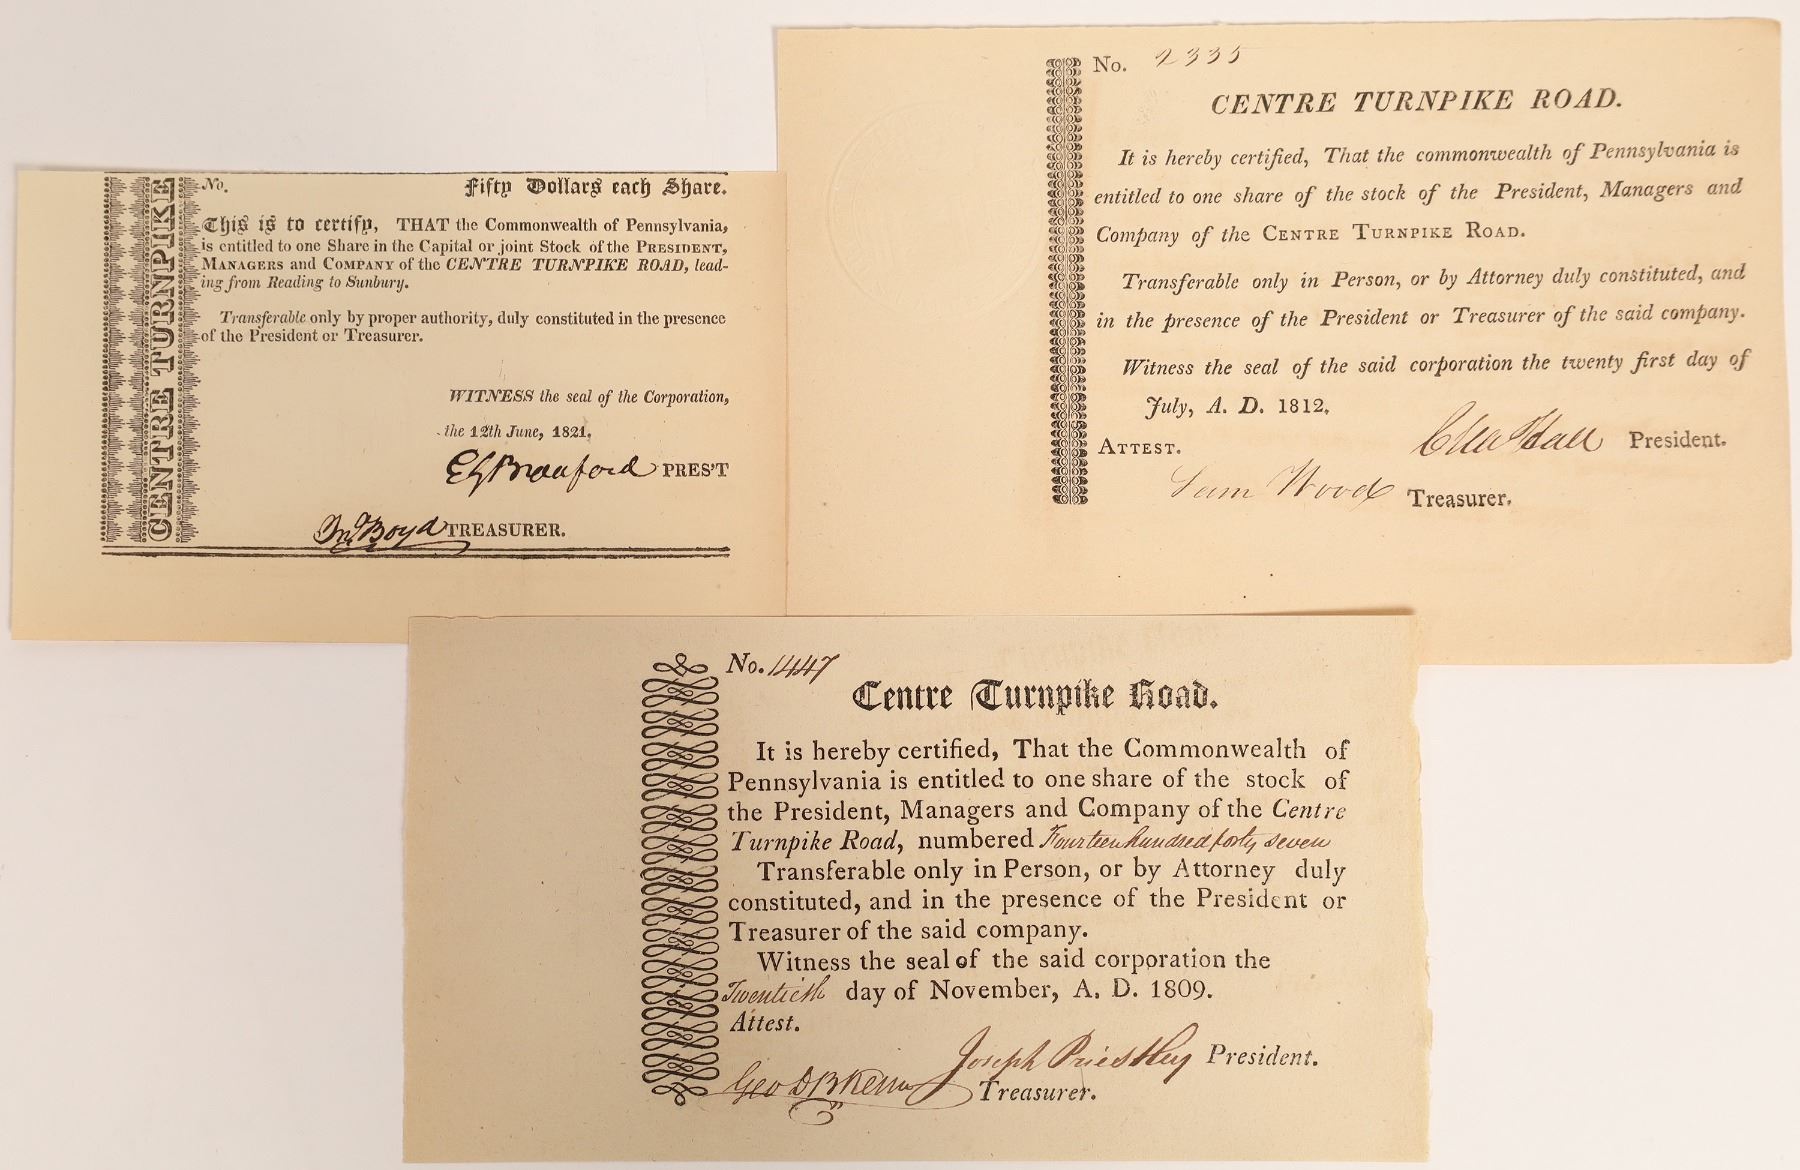 CENTRE TURNPIKE
No.
Fifty Dollars each Share.
This is to certify, THAT the Commonwealth of Pennsylvania,
is entitled to one Share in the Capital or joint Stock of the PRESIDENT,
MANAGERS and COMPANY of the CENTRE TURNPIKE ROAD, lead-
ing from Reading to Sunbury.
Transferable only by proper authority, duly constituted in the presence
of the President or Treasurer.
WITNESS the seal of the Corporation,
the 12th June, 1821.
PRES'T
Jno Boyd TREASURER.
No. 2335
CENTRE TURNPIKE ROAD.
It is hereby certified, That the commonwealth of Pennsylvania is
entitled to one share of the stock of the President, Managers and
Company of the CENTRE TURNPIKE ROAD.
Transferable only in Person, or by Attorney duly constituted, and
in the presence of the President or Treasurer of the said company.
Witness the seal of the said corporation the twenty first day of
July, A. D. 1812.
Hall President.
ATTEST.
Sam Wood Treasurer.
No. 1447
Centre Turnpike Road.
It is hereby certified, That the Commonwealth of
Pennsylvania is entitled to one share of the stock of
the President, Managers and Company of the Centre
Turnpike Road, numbered Fourteen hundred forty seven
Transferable only in Person, or by Attorney duly
constituted, and in the presence of the President or
Treasurer of the said company.
Witness the seal of the said corporation the
Twentieth day of November, A. D. 1809.
Attest.
Joseph Priestley President.
Geo D B Keim Treasurer.